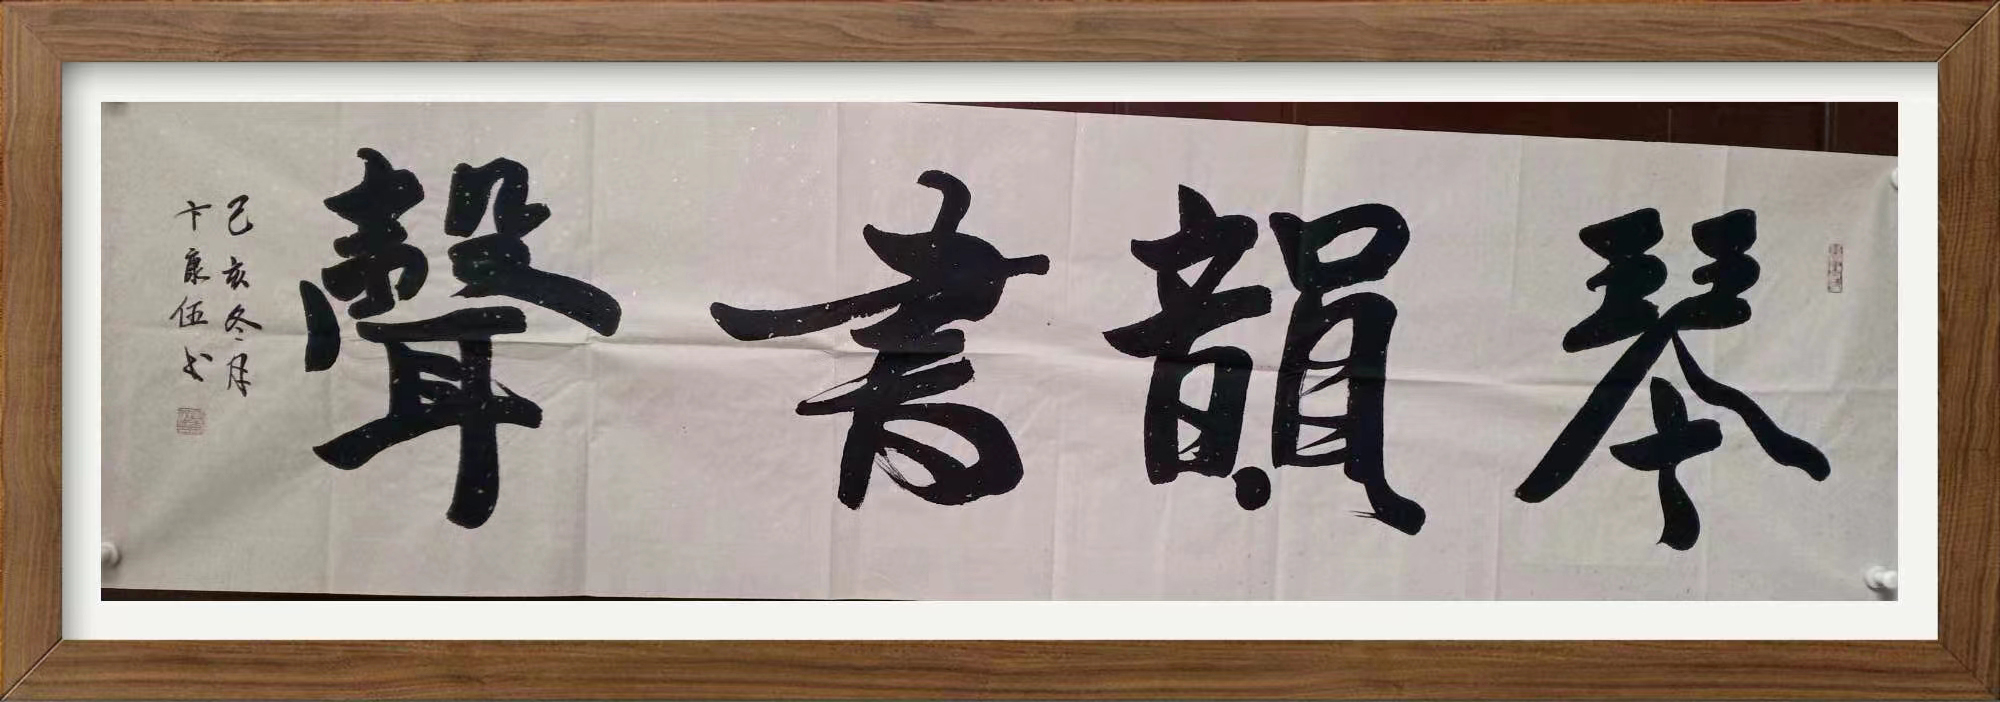 琴韻書聲
己亥冬月
卞康伍书